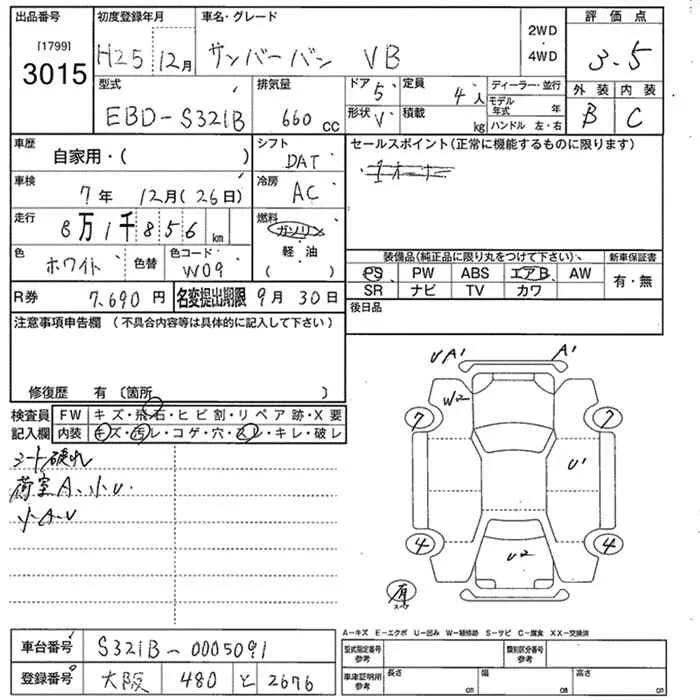 出品番号 初度登録年月 車名・グレード 評価点
[1799]
3015 H25 12月 サンバーバン VB 2WD 4WD 3.5
型式 排気量 ドア 5 定員 4人 ディーラー・並行 外装 内装
EBD-S321B 660cc 形状 V 積載 kg モデル年式 年 ハンドル 左・右 B C
車歴 自家用・( ) シフト DAT セールスポイント(正常に機能するものに限ります)
車検 7年 12月(26日) 冷房 AC
走行 8万1千856km 燃料 ガソリン
軽油
( )
色 ホワイト 色替 色コード W09
装備品(純正品に限り丸をつけて下さい) 新車保証書
PS PW ABS エアB AW 有・無
SR ナビ TV カワ
R券 7,690円 名変提出期限 9月30日 後日品
注意事項申告欄(不具合内容等は具体的に記入して下さい)
修復歴 有〔箇所 〕
検査員 FW キズ・飛石・ヒビ割・リペア跡・X要
記入欄 内装 キズ・汚レ・コゲ・穴・スレ・キレ・破レ
シート破れ
荷室A、小U.
小A・U
UA' A'
W2
7 7
U'
4 4
U2
有
スペア
A-キズ E-エクボ U-凹み W-補修跡 S-サビ C-腐食 XX-交換済
車台番号 S321B-0005091 型式指定番号 参考 類別区分番号 参考
登録番号 大阪 480 と 2676 車庫証明所 参考 長さ cm 幅 cm 高さ cm